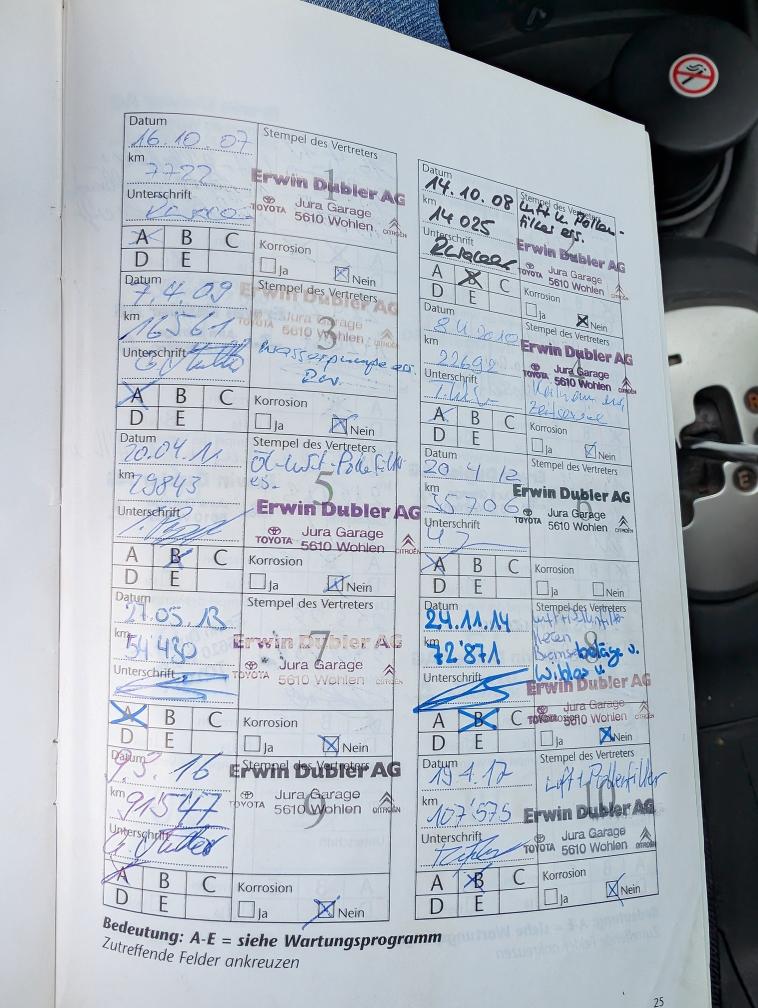 Datum
16.10.07
Stempel des Vertreters
1
km
7722
Erwin Dubler AG
TOYOTA Jura Garage CITROËN
5610 Wohlen
Unterschrift
A B C
D E
Korrosion
Ja Nein
Datum
14.10.08
Stempel des Vertreters
Luft u. Pollen-
filter ers.
km
14 025
Erwin Dubler AG
TOYOTA Jura Garage CITROËN
5610 Wohlen
Unterschrift
A B C
D E
Korrosion
Ja Nein
Datum
7.4.09
Stempel des Vertreters
Erwin Dubler AG
3
km
16561
TOYOTA Jura Garage
5610 Wohlen
Unterschrift
Wasserpumpe ers.
A B C
D E
Korrosion
Ja Nein
Datum
Stempel des Vertreters
4
km
22692
Erwin Dubler AG
TOYOTA Jura Garage
5610 Wohlen
Unterschrift
A B C
D E
Korrosion
Ja Nein
Datum
20.04.11
Stempel des Vertreters
Öl-Luft-Pollenfilter
ers.
5
km
29843
Erwin Dubler AG
TOYOTA Jura Garage CITROËN
5610 Wohlen
Unterschrift
A B C
D E
Korrosion
Ja Nein
Datum
20 4 12
Stempel des Vertreters
6
km
35706
Erwin Dubler AG
TOYOTA Jura Garage CITROËN
5610 Wohlen
Unterschrift
A B C
D E
Korrosion
Ja Nein
Datum
27.05.13
Stempel des Vertreters
7
km
54430
Erwin Dubler AG
TOYOTA Jura Garage CITROËN
5610 Wohlen
Unterschrift
A B C
D E
Korrosion
Ja Nein
Datum
24.11.14
Stempel des Vertreters
8
km
72'871
Bremsbeläge v.
Unterschrift
Erwin Dubler AG
TOYOTA Jura Garage CITROËN
5610 Wohlen
A B C
D E
Korrosion
Ja Nein
Datum
9.3.16
Stempel des Vertreters
9
km
91547
Erwin Dubler AG
TOYOTA Jura Garage CITROËN
5610 Wohlen
Unterschrift
A B C
D E
Korrosion
Ja Nein
Datum
19.1.17
Stempel des Vertreters
Luft + Pollenfilter
10
km
107'575
Erwin Dubler AG
TOYOTA Jura Garage CITROËN
5610 Wohlen
Unterschrift
A B C
D E
Korrosion
Ja Nein
Bedeutung: A-E = siehe Wartungsprogramm
Zutreffende Felder ankreuzen
25
R
E